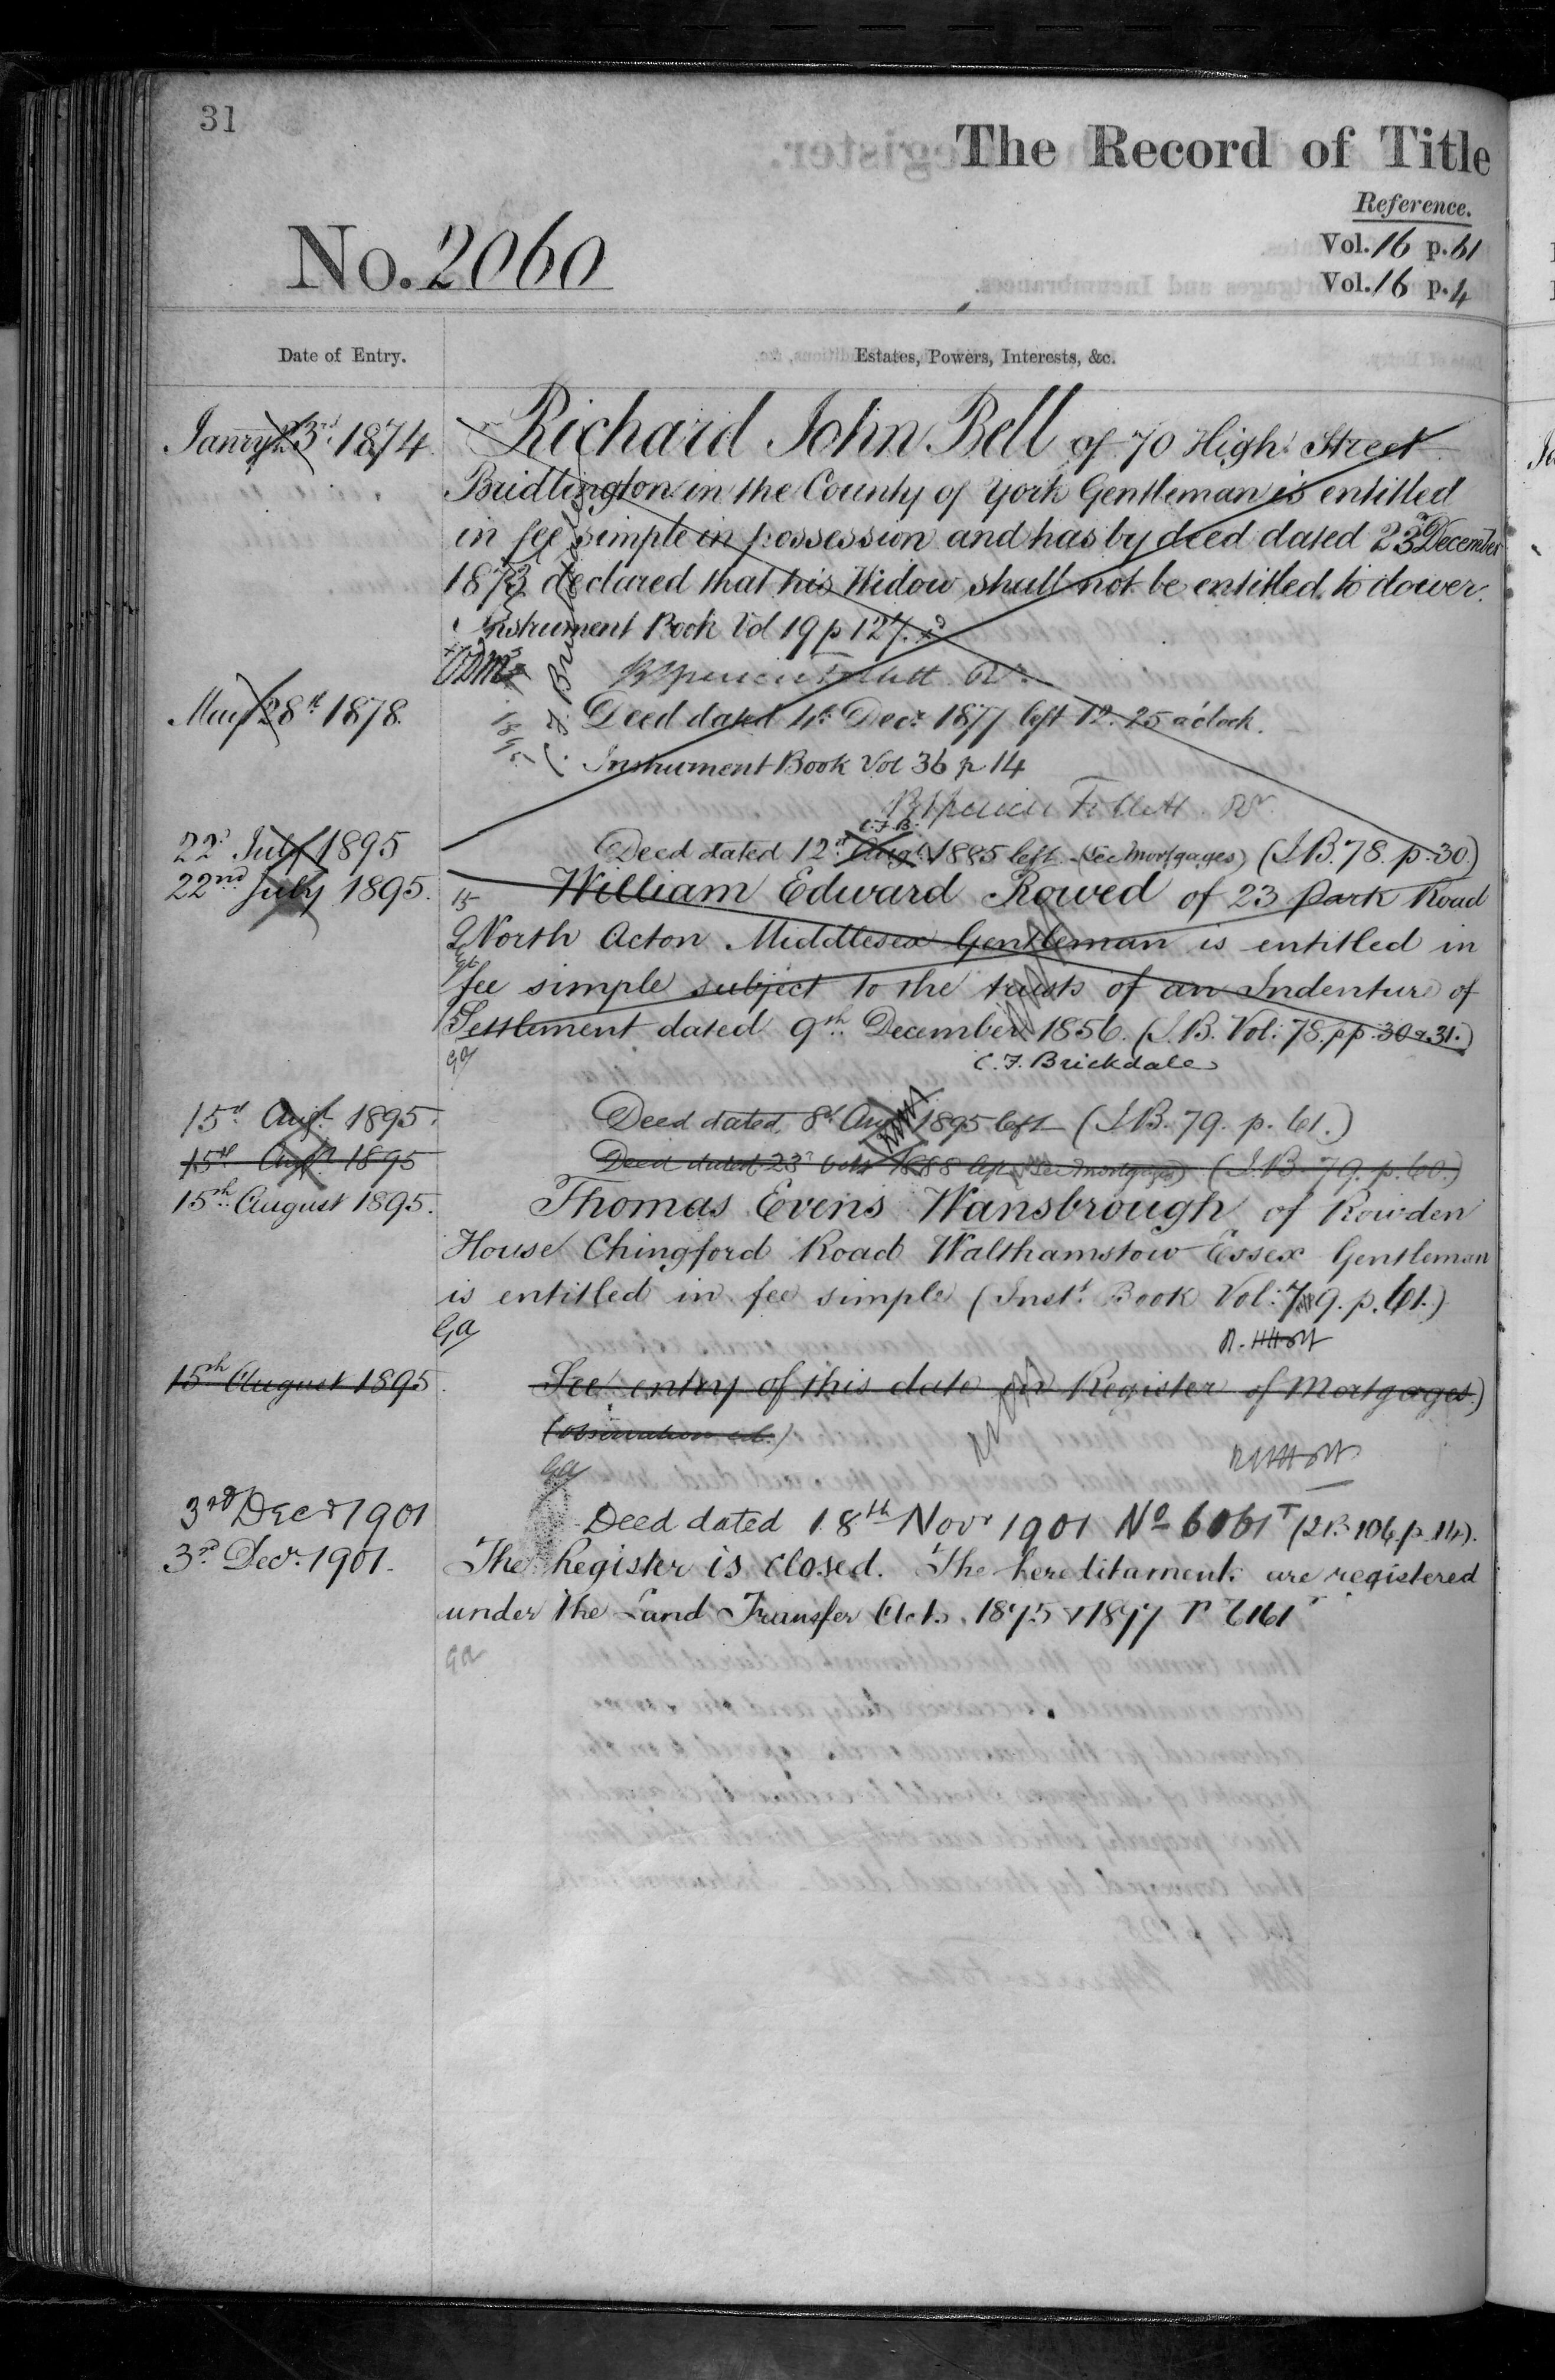 31
The Record of Title
Reference.
No. 2060
Vol. 16 p. 61
Vol. 16 p. 4
Date of Entry.
Estates, Powers, Interests, &c.
Janry 23rd 1874
Richard John Bell of 70 High Street
Bridlington in the County of York Gentleman is entitled
in fee simple in possession and has by deed dated 23rd December
1873 declared that his Widow shall not be entitled to dower.
Instrument Book Vol 19 p 127.
May 28th 1878.
Deed dated 4th Decr 1877 left 12.25 o'clock.
Instrument Book Vol 36 p 14
C.F.B.
22d July 1895
Deed dated 12th Augt 1885 left (See Mortgages) (I.B. 78. p. 30.)
22nd July 1895.
William Edward Rowed of 23 Park Road
North Acton Middlesex Gentleman is entitled in
fee simple subject to the trusts of an Indenture of
Settlement dated 9th December 1856. (I.B. Vol: 78. pp. 30 & 31.)
C. F. Brickdale
15th Augt 1895.
Deed dated 8th Aug 1895 left (I.B. 79. p. 61.)
15th Augt 1895
Deed dated 23d 1888 (See Mortgages) (I.B. 79. p. 60.)
15th August 1895.
Thomas Evens Wansbrough of Rowden
House Chingford Road Walthamstow Essex Gentleman
is entitled in fee simple (Inst. Book Vol: 79. p. 61.)
15th August 1895.
See entry of this date in Register of Mortgages.)
3rd Decr 1901
Deed dated 18th Novr 1901 No 6061T (I.B. 106. p. 14).
3rd Decr. 1901.
The Register is closed. The hereditaments are registered
under the Land Transfer Acts. 1875 & 1897